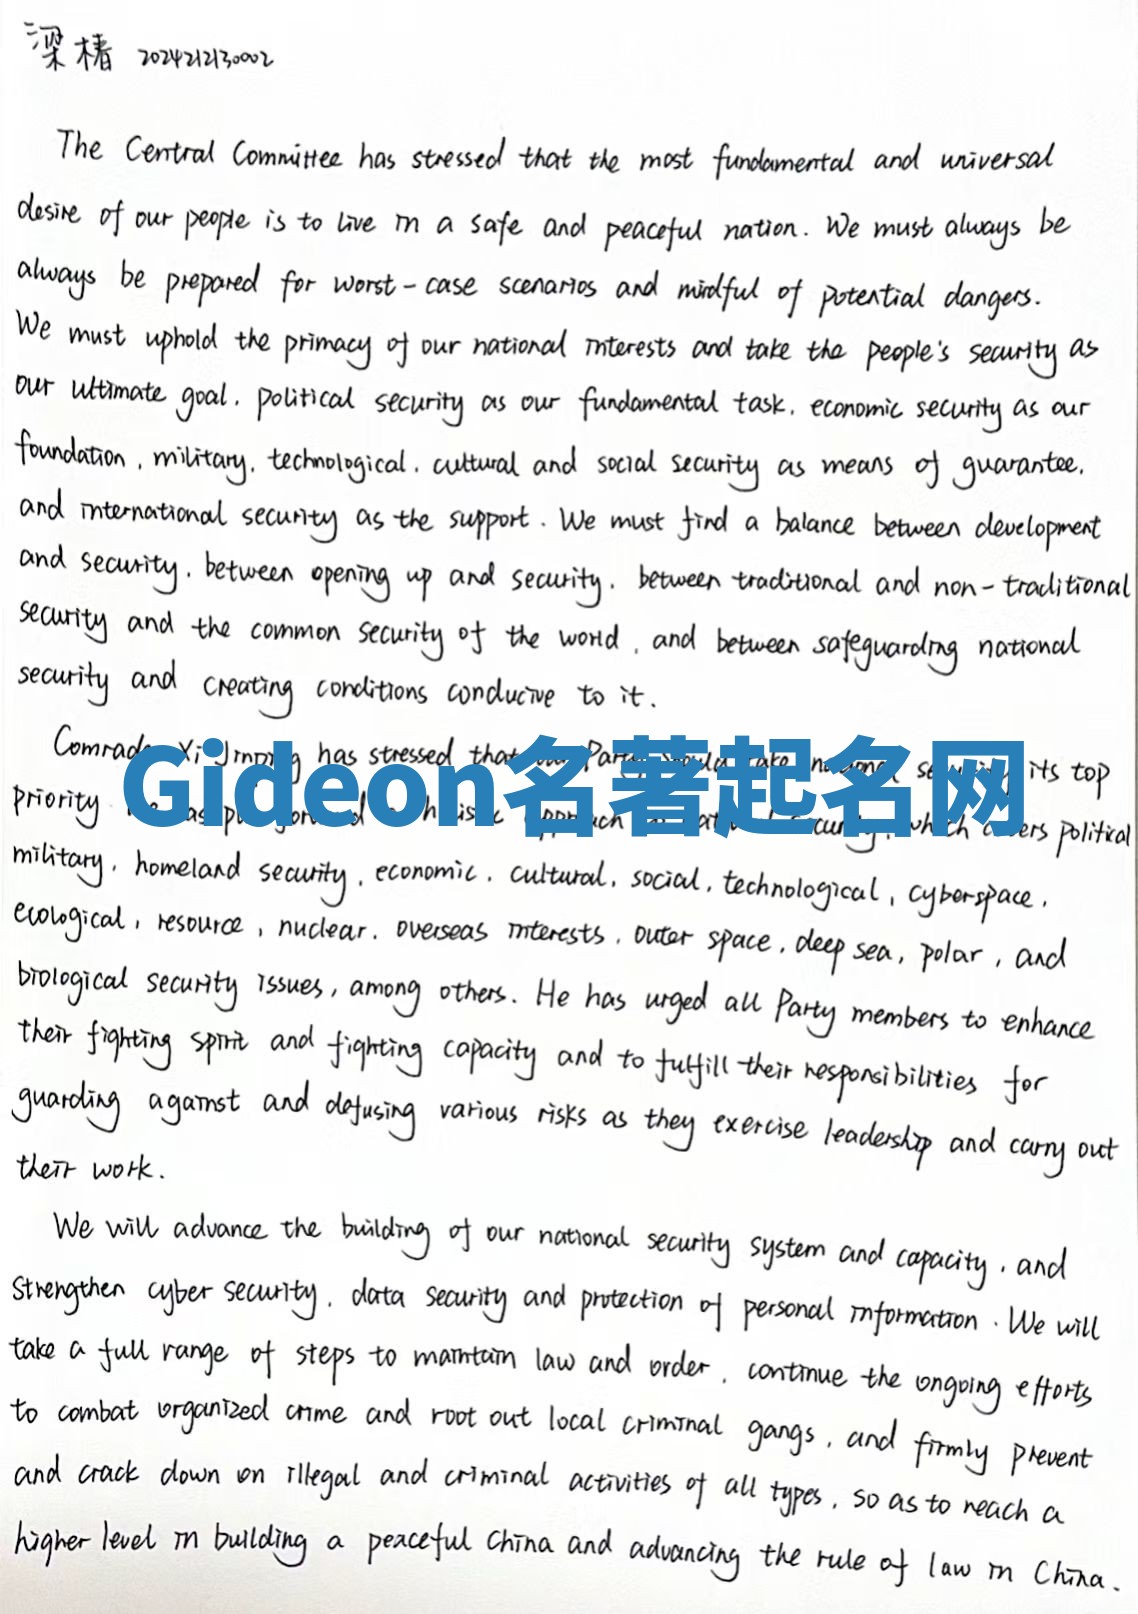 梁椿 2024212130002
The Central Committee has stressed that the most fundamental and universal
desire of our people is to live in a safe and peaceful nation. We must always be
always be prepared for worst-case scenarios and mindful of potential dangers.
We must uphold the primacy of our national interests and take the people's security as
our ultimate goal, political security as our fundamental task, economic security as our
foundation, military, technological, cultural and social security as means of guarantee,
and international security as the support. We must find a balance between development
and security, between opening up and security, between traditional and non-traditional
security and the common security of the world, and between safeguarding national
security and creating conditions conducive to it.
Comrade Xi Jinping has stressed that Party should take national security its top
Gideon名著起名网
priority which covers political
military, homeland security, economic, cultural, social, technological, cyberspace,
ecological, resource, nuclear, overseas interests, outer space, deep sea, polar, and
biological security issues, among others. He has urged all Party members to enhance
their fighting spirit and fighting capacity and to fulfill their responsibilities for
guarding against and defusing various risks as they exercise leadership and carry out
their work.
We will advance the building of our national security system and capacity, and
strengthen cyber security, data security and protection of personal information. We will
take a full range of steps to maintain law and order, continue the ongoing efforts
to combat organized crime and root out local criminal gangs, and firmly prevent
and crack down on illegal and criminal activities of all types, so as to reach a
higher level in building a peaceful China and advancing the rule of law in China.